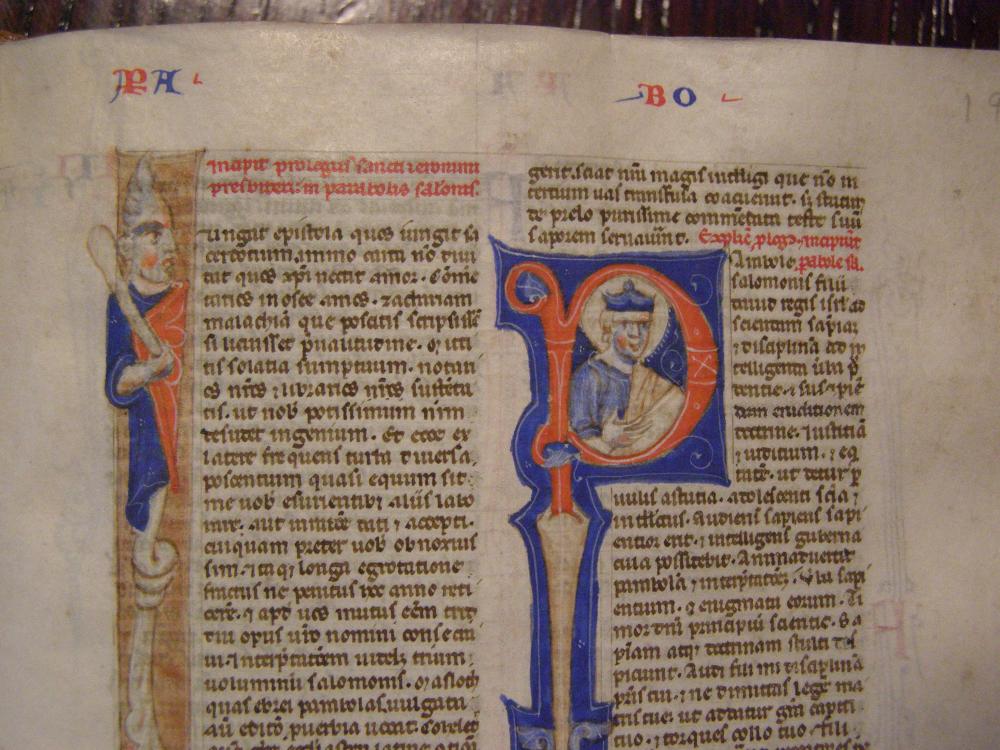 PA
BO
Incipit prologus sancti ieronimi
presbiteri in parabolis salomis.
ungat epistola quos iungit sa
cerdotium immo carta non divi
dat quos xpi nectit amor. Comme
tarios in osee amos. zachariam
malachiā que poscitis scripsisse
si licuisset p valitudine. Mitti
tis solatia sumptuum. notari
os nr̄os et librarios nr̄os susteta
tis. ut nob potissimum nrm
desudet ingenium. Et ecce ex
latere frequens turba diversa
poscentium quasi equum sit
me vob esurientibus aliis labo
rare. aut in ratione dati et accepti.
cuiquam preter vob obnoxius
sim. itaq longa egrotatione
fractus ne penitus hoc anno reti
cerē. et apd vos mutus eēm. tri
dui opus nr̄o nomini consecra
vi. interpretationem videlz trium
voluminū salomonis.
quas ebrei parabolas. vulgata
aū editio puerbia vocat. coeleth
gerit. sciat nrm magis intelligi que nō in
tertium vas transfusa coacuerint. s; statim
de prelo purissime commendata teste suū
saporem servaverint. Explic prologus. incipiunt
parabole sal.
Parabole
salomonis filii
david regis isrl ad
sciendam sapiaz
et disciplinā ad in
telligenda verba p
dentie. et suscipie
dam eruditionem
doctrine. iustitiā
et iuditium. et eq
tatē. ut detur p
vulis astutia. adolescenti scia et
intellectus. Audiens sapiens sapi
entior erit. et intelligens guberna
cula possidebit. Animadvertet
parabolā et interpretationē. verba sapi
entium. et enigmata eorum. Ti
mor dni principiū scientie. Sa
piam atq doctrinam stulti des
piciunt. Audi fili mi disciplinā
pris tui. et ne dimittas legē ma
tris tue. ut addatur grā capiti
tuo. et torques collo tuo. Fili